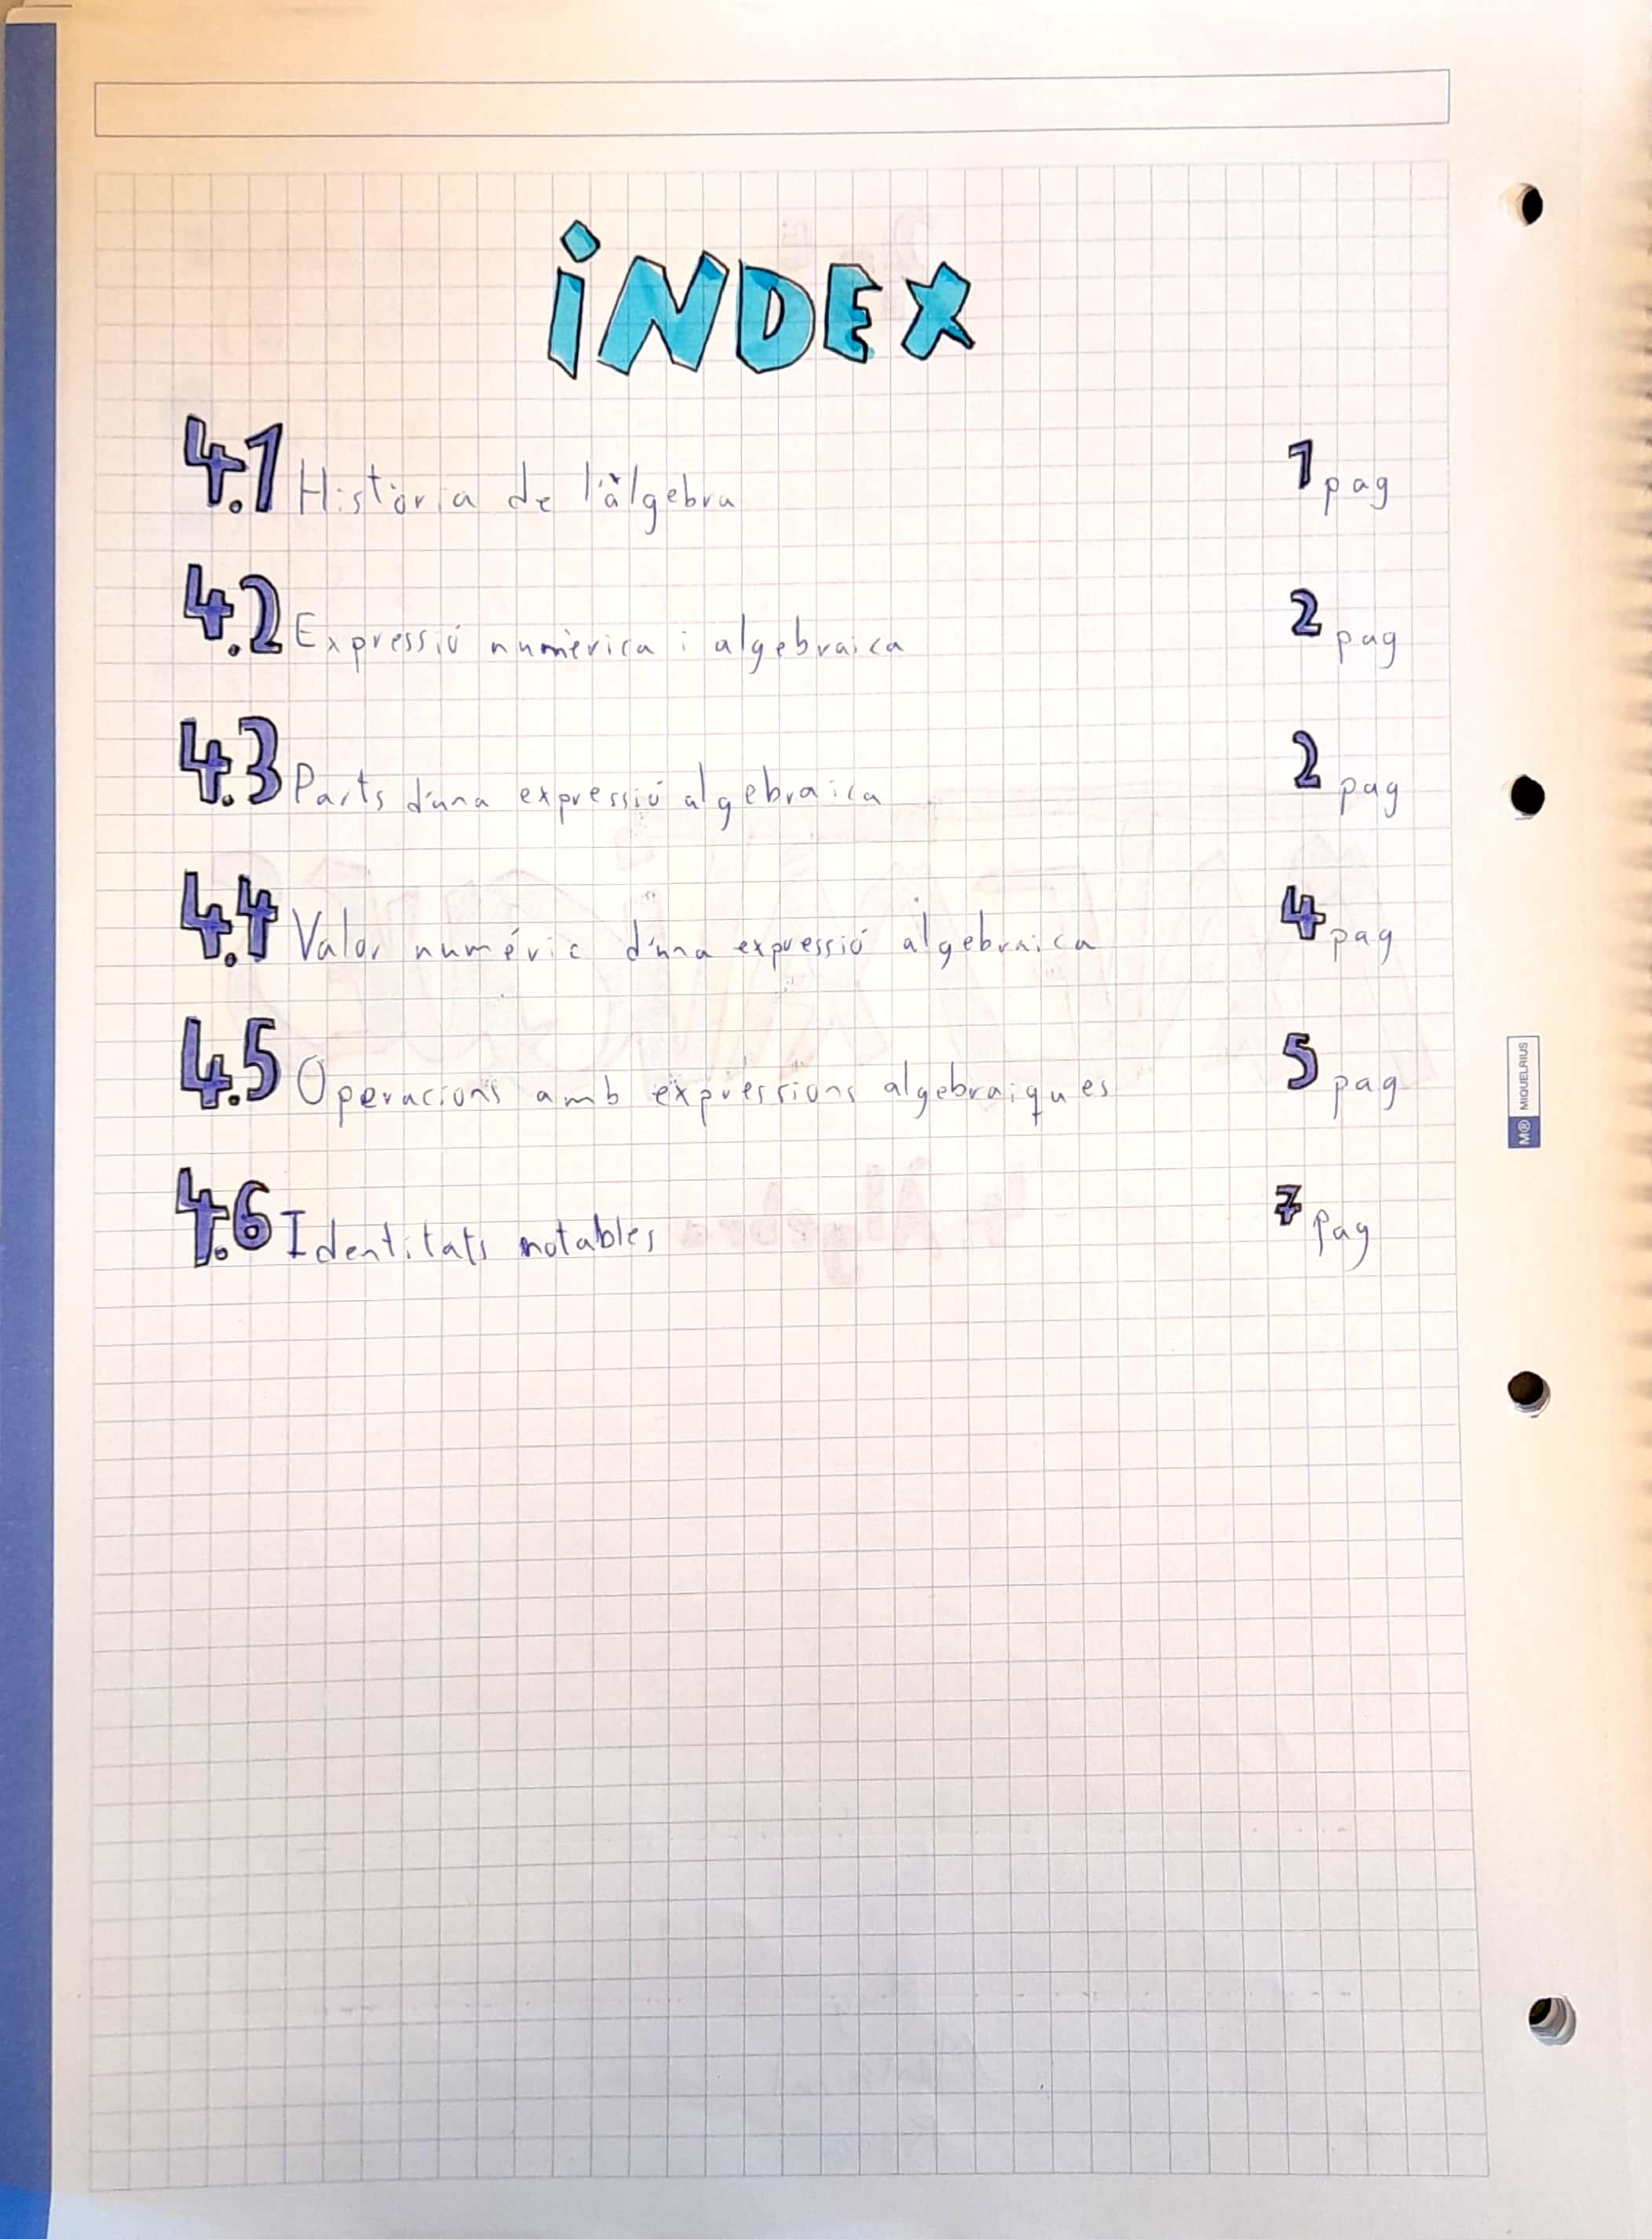 iNDEX
4.1 Història de l'àlgebra 1 pag
4.2 Expressió numèrica i algebraica 2 pag
4.3 Parts d'una expressió algebraica 2 pag
4.4 Valor numéric d'una expressió algebraica 4 pag
4.5 Operacions amb expressions algebraiques 5 pag
4.6 Identitats notables 7 pag
M® MIQUELRIUS